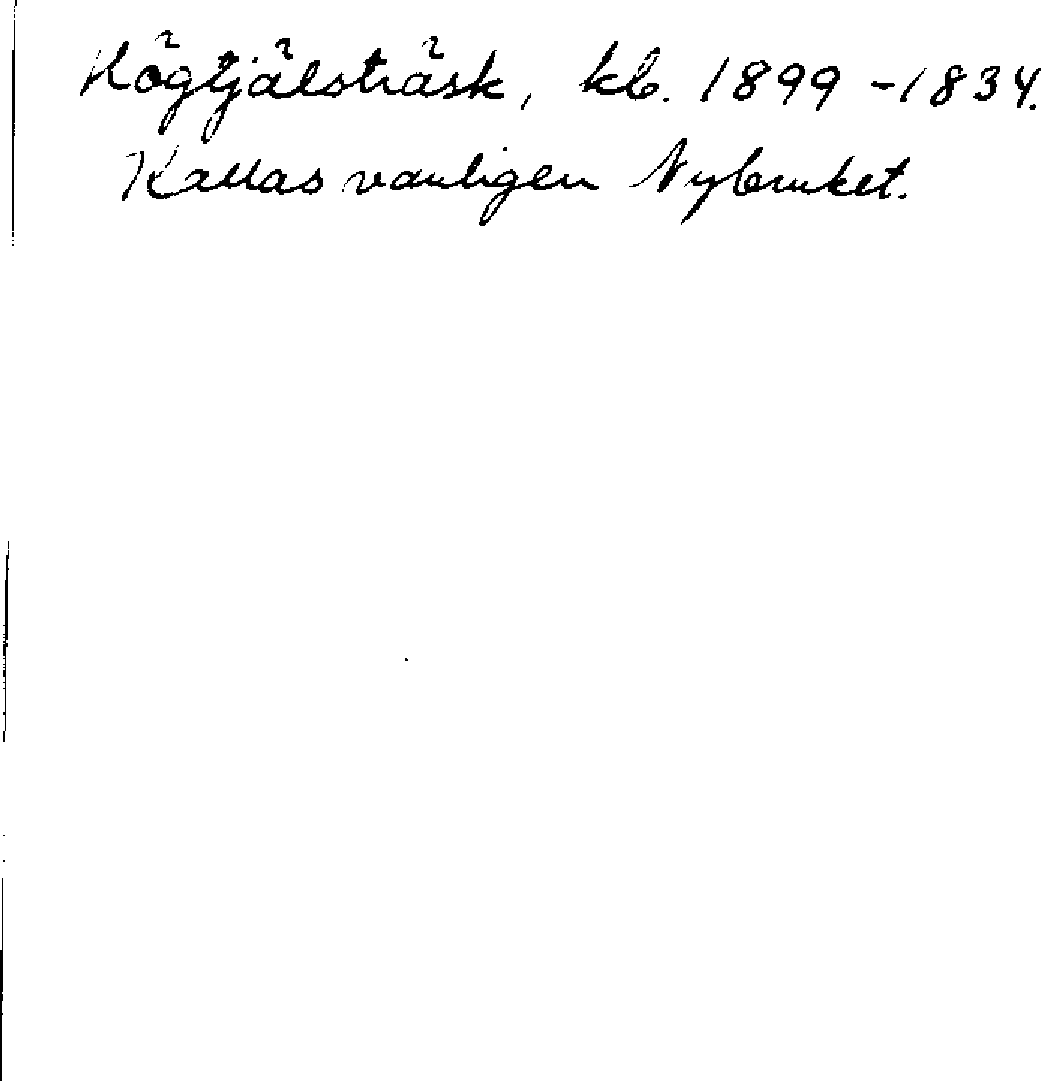 Högtjälsträsk, kb. 1899 - 1834.
Kallas vanligen Nybruket.